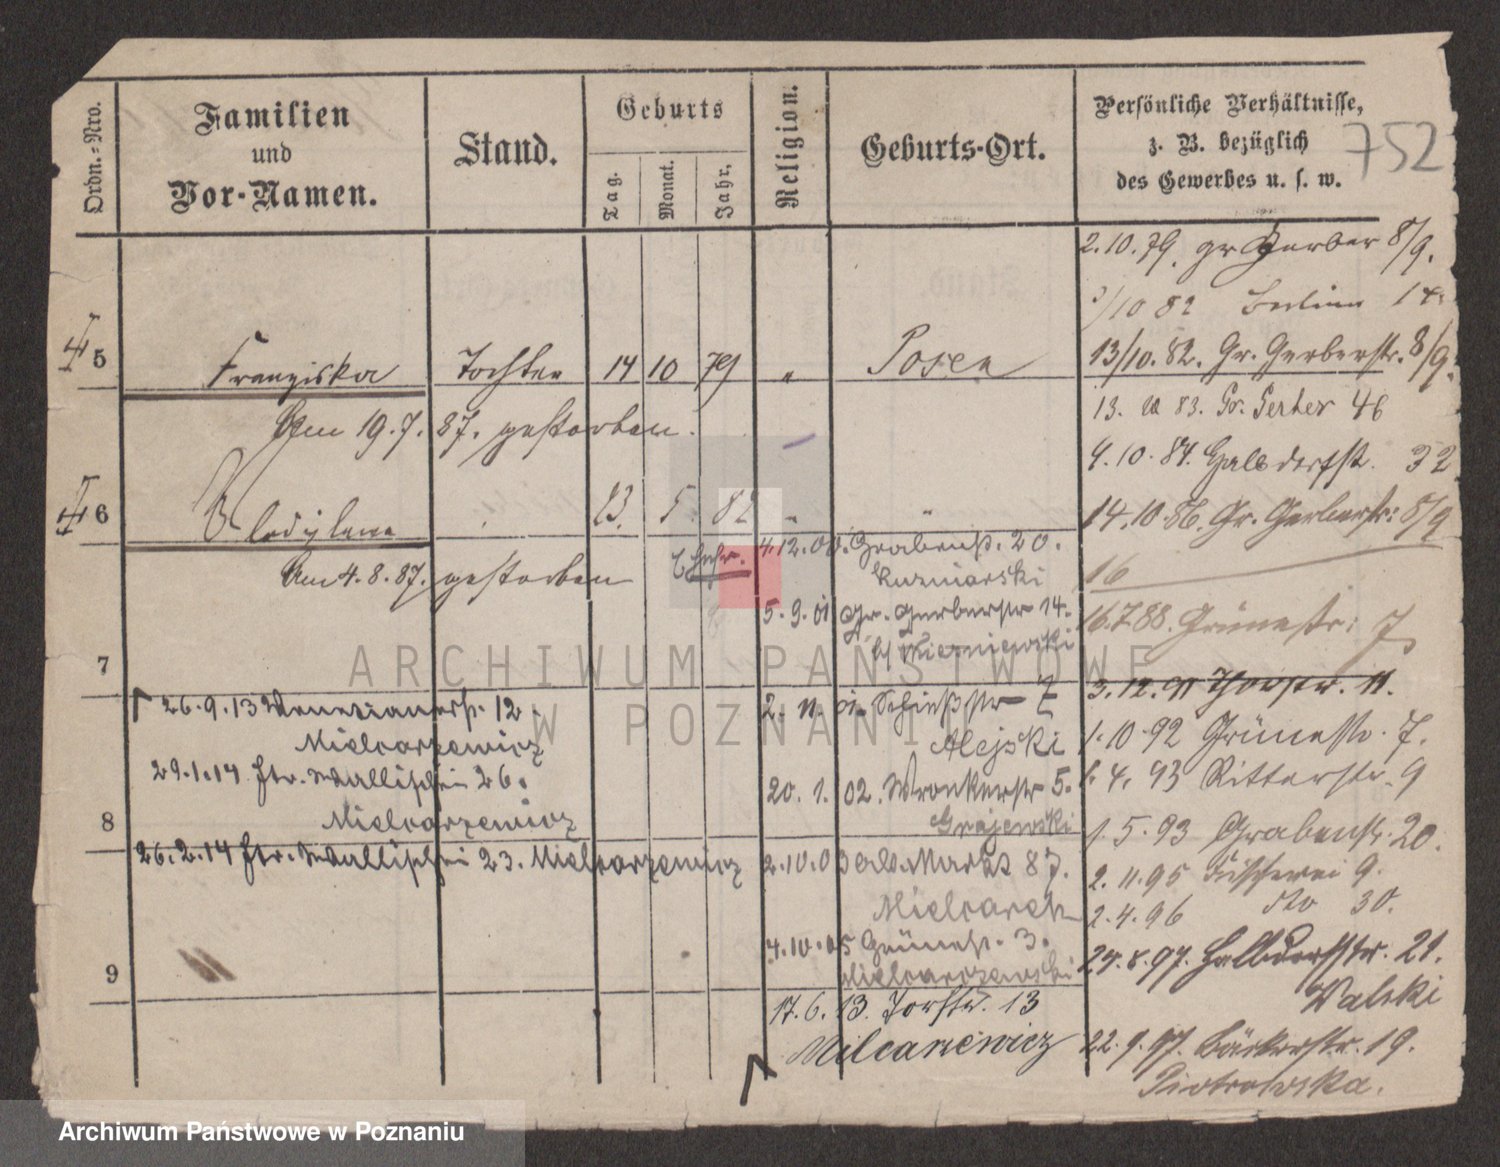 Ordn.-Nro.
Familien
und
Vor-Namen.
Stand.
Geburts
Tag.
Monat.
Jahr,
Religion.
Geburts-Ort.
Persönliche Verhältnisse,
z. B. bezüglich
des Gewerbes u. s. w.
752
2.10.79. gr Gerber 8/9.
/10 82 14
5 Franziska Tochter 14 10 79 " Posen
13/10. 82. Gr. Gerberstr. 8/9.
Am 19.7.87. gestorben.
13. 83. Gr. Gerber 46
4.10.84. Halbdorfstr. 32
6 Wladislawa 23. 5 82 " "
14.10.86. Gr. Gerberstr: 8/9
Am 4.8.87. gestorben
4.12.00. Grabenstr. 20.
Kuzniarski
16
5.9.01 Gr. Gerberstr 14.
b/ Wierniewski
16.7.88. Grünestr: 7
7
3.12.91 Thorstr. 11.
26.9.13 Venetianerstr. 12.
Mielcarzewicz
2.11.01. Schießstr 7
Alejski
1.10.92 Grünestr. 7.
29.1.14 Str. Wallischei 26.
Mielcarzewicz
4.93 Ritterstr. 9
20.1.02. Wronkerstr 5.
Grajewski
8
1.5.93 Grabenstr. 20.
26.2.14 Str. Wallischei 23. Mielcarzewicz
2.10.03 Alt. Markt 87.
Mielcarek
2.11.95 Fischerei 9.
2.4.96 dto 30.
4.10.05 Grünestr. 3.
Mielcarzewski
9
24.8.97. Halbdorfstr. 21.
Walski
17.6.13. Torstr. 13
Milcarzewicz
22.9.97. Bäckerstr. 19.
Piotrowska.
ARCHIWUM PAŃSTWOWE
W POZNANIU
Archiwum Państwowe w Poznaniu